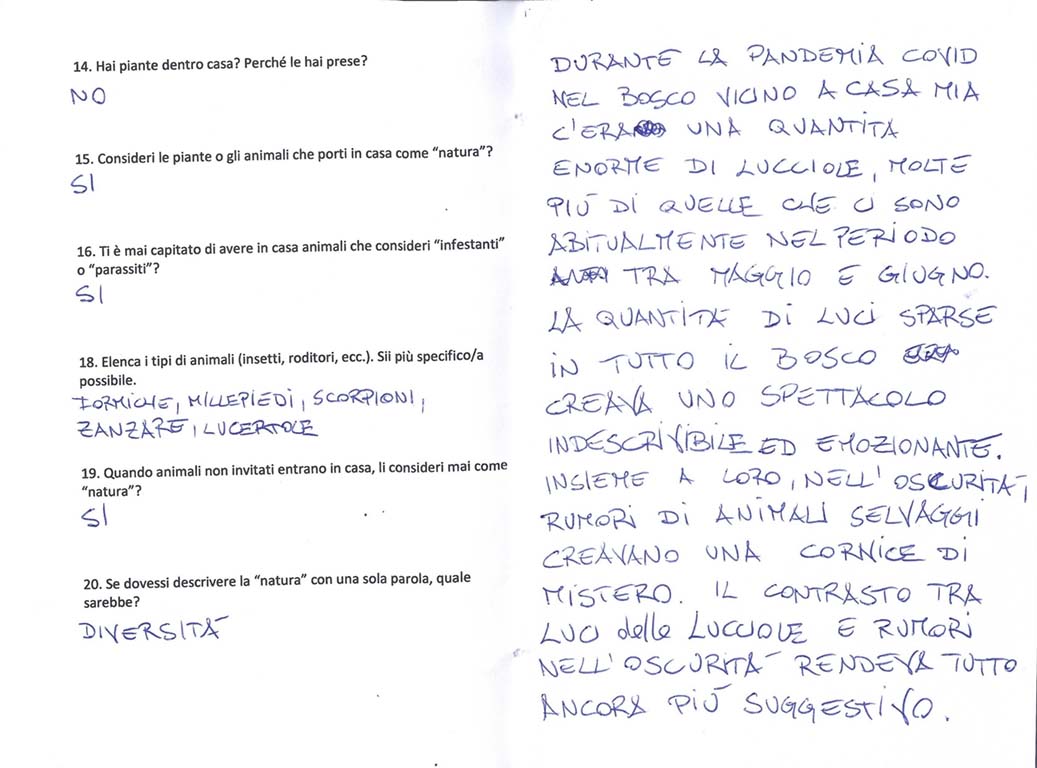 14. Hai piante dentro casa? Perché le hai prese?
NO
15. Consideri le piante o gli animali che porti in casa come “natura”?
SI
16. Ti è mai capitato di avere in casa animali che consideri “infestanti”
o “parassiti”?
SI
18. Elenca i tipi di animali (insetti, roditori, ecc.). Sii più specifico/a
possibile.
FORMICHE, MILLEPIEDI, SCORPIONI,
ZANZARE, LUCERTOLE
19. Quando animali non invitati entrano in casa, li consideri mai come
“natura”?
SI
20. Se dovessi descrivere la “natura” con una sola parola, quale
sarebbe?
DIVERSITÀ
DURANTE LA PANDEMIA COVID
NEL BOSCO VICINO A CASA MIA
C'ERA UNA QUANTITÀ
ENORME DI LUCCIOLE, MOLTE
PIÙ DI QUELLE CHE CI SONO
ABITUALMENTE NEL PERIODO
TRA MAGGIO E GIUGNO.
LA QUANTITÀ DI LUCI SPARSE
IN TUTTO IL BOSCO
CREAVA UNO SPETTACOLO
INDESCRIVIBILE ED EMOZIONANTE.
INSIEME A LORO, NELL'OSCURITÀ,
RUMORI DI ANIMALI SELVAGGI
CREAVANO UNA CORNICE DI
MISTERO. IL CONTRASTO TRA
LUCI delle LUCCIOLE E RUMORI
NELL'OSCURITÀ RENDEVA TUTTO
ANCORA PIÙ SUGGESTIVO.